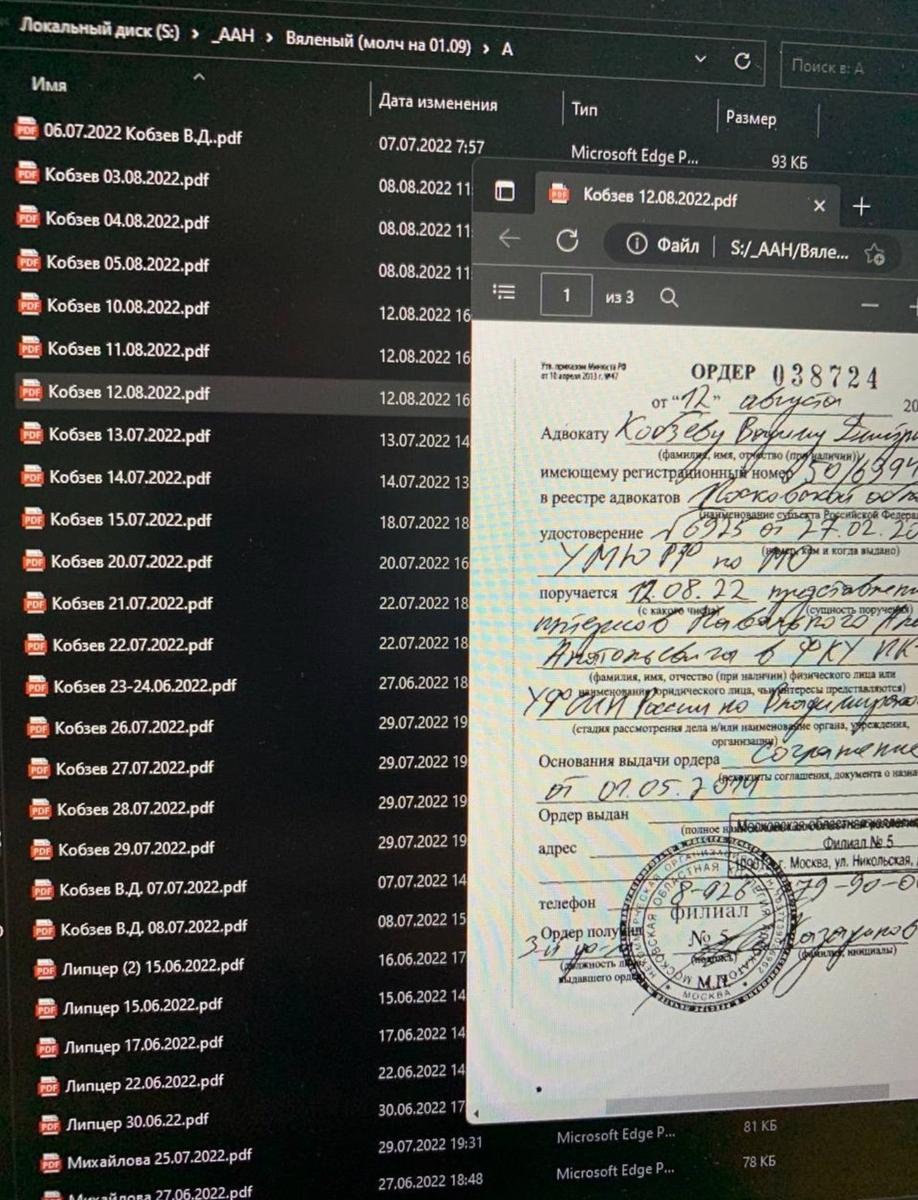 Локальный диск (S:) > _ААН > Вяленый (молч на 01.09) > А
Поиск в: А
Имя Дата изменения Тип Размер
06.07.2022 Кобзев В.Д..pdf 07.07.2022 7:57 Microsoft Edge P... 93 КБ
Кобзев 03.08.2022.pdf 08.08.2022 11
Кобзев 04.08.2022.pdf 08.08.2022 11
Кобзев 05.08.2022.pdf 08.08.2022 11
Кобзев 10.08.2022.pdf 12.08.2022 16
Кобзев 11.08.2022.pdf 12.08.2022 16
Кобзев 12.08.2022.pdf 12.08.2022 16
Кобзев 13.07.2022.pdf 13.07.2022 14
Кобзев 14.07.2022.pdf 14.07.2022 13
Кобзев 15.07.2022.pdf 18.07.2022 18
Кобзев 20.07.2022.pdf 20.07.2022 16
Кобзев 21.07.2022.pdf 22.07.2022 18
Кобзев 22.07.2022.pdf 22.07.2022 18
Кобзев 23-24.06.2022.pdf 27.06.2022 18
Кобзев 26.07.2022.pdf 29.07.2022 19
Кобзев 27.07.2022.pdf 29.07.2022 19
Кобзев 28.07.2022.pdf 29.07.2022 19
Кобзев 29.07.2022.pdf 29.07.2022 19
Кобзев В.Д. 07.07.2022.pdf 07.07.2022 14
Кобзев В.Д. 08.07.2022.pdf 08.07.2022 15
Липцер (2) 15.06.2022.pdf 16.06.2022 17
Липцер 15.06.2022.pdf 15.06.2022 14
Липцер 17.06.2022.pdf 17.06.2022 14
Липцер 22.06.2022.pdf 22.06.2022 14
Липцер 30.06.22.pdf 30.06.2022 17
Михайлова 25.07.2022.pdf 29.07.2022 19:31 Microsoft Edge P... 81 КБ
Михайлова 27.06.2022.pdf 27.06.2022 18:48 Microsoft Edge P... 78 КБ
Кобзев 12.08.2022.pdf
Файл S:/_ААН/Вяле...
1 из 3
Утв. приказом Минюста РФ
от 10 апреля 2013 г. №47
ОРДЕР 038724
от "12" августа 20
Адвокату Кобзеву Вадиму Дмитри
(фамилия, имя, отчество (при наличии))
имеющему регистрационный номер 50/6994
в реестре адвокатов Московской обл
(наименование субъекта Российской Федера
удостоверение № 6925 от 27.02.20
(номер, кем и когда выдано)
УМЮ РФ по МО
поручается 12.08.22 представлени
(с какого числа) (сущность поручения)
интересов Навального Але
Анатольевича в ФКУ ИК-
(фамилия, имя, отчество (при наличии) физического лица или
наименование юридического лица, чьи интересы представляются)
УФСИН России по Владимирской
(стадия рассмотрения дела и/или наименование органа, учреждения,
организации)
Основания выдачи ордера Соглашение
(реквизиты соглашения, документа о назна
Ордер выдан Московская областная коллегия
Филиал № 5
адрес г. Москва, ул. Никольская,
телефон 8-926
МОСКОВСКАЯ ОБЛАСТНАЯ КОЛЛЕГИЯ АДВОКАТОВ
филиал
№ 5
МОСКВА
М.П.
(подпись) (фамилия, инициалы)